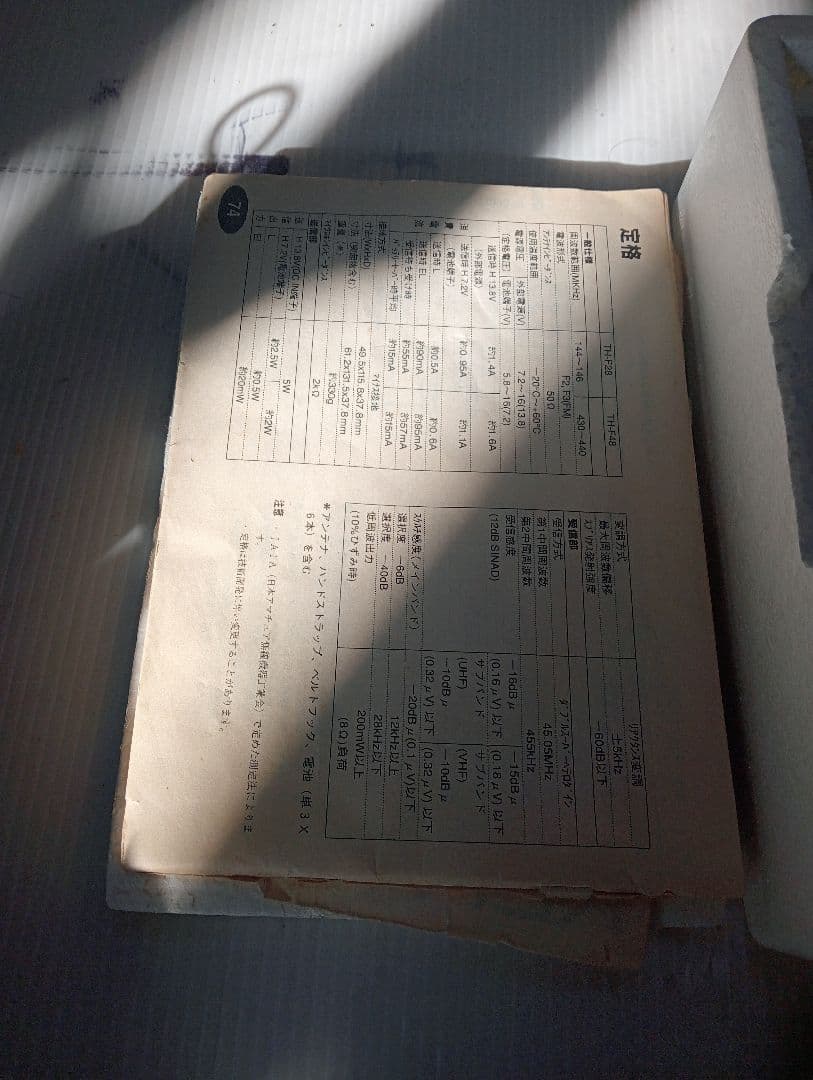 定格
TH-F28 TH-F48
一般仕様
周波数範囲(MHz) 144～146 430～440
電波形式 F2, F3(FM)
アンテナインピーダンス 50Ω
使用温度範囲 −20°C～+60°C
電源電圧 外部電源(V) 7.2～16(13.8)
(定格電圧) 電池端子(V) 5.8～15(7.2)
消費電流
送信時 H 13.8V 約1.4A 約1.6A
(外部電源)
送信時 H 7.2V 約0.95A 約1.1A
(電池端子)
送信時 L 約0.5A 約0.6A
送信時 EL 約90mA 約95mA
受信待ち受け時 約55mA 約57mA
バッテリーセーバー時平均 約15mA 約15mA
接地方式 マイナス接地
寸法(WxHxD) 49.5x115.8x37.8mm
寸法(突起物含む) 61.2x131.5x37.8mm
重量(※) 約330g
マイクロホンインピーダンス 2kΩ
送信部
送信出力
H 13.8V(DC IN端子) 5W
H 7.2V(電池端子) 約2.5W 約2W
約0.5W
EL 約20mW
74
変調方式 リアクタンス変調
最大周波数偏移 ±5kHz
スプリアス発射強度 −60dB以下
受信部
受信方式 ダブルスーパーヘテロダイン
第1中間周波数 45.05MHz
第2中間周波数 455kHz
受信感度 −16dBμ −15dBμ
(12dB SINAD) (0.16μV)以下 (0.18μV)以下
サブバンド サブバンド
(UHF) (VHF)
−10dBμ −10dBμ
(0.32μV)以下 (0.32μV)以下
スケルチ感度(メインバンド) −20dBμ(0.1μV)以下
選択度 −6dB 12kHz以上
選択度 −40dB 28kHz以下
低周波出力 200mW以上
(10%ひずみ時) (8Ω)負荷
※アンテナ、ハンドストラップ、ベルトフック、電池（単3×
6本）を含む
注意 ・JAIA（日本アマチュア無線機器工業会）で定めた測定法によりま
す。
・定格は技術開発に伴い変更することがあります。